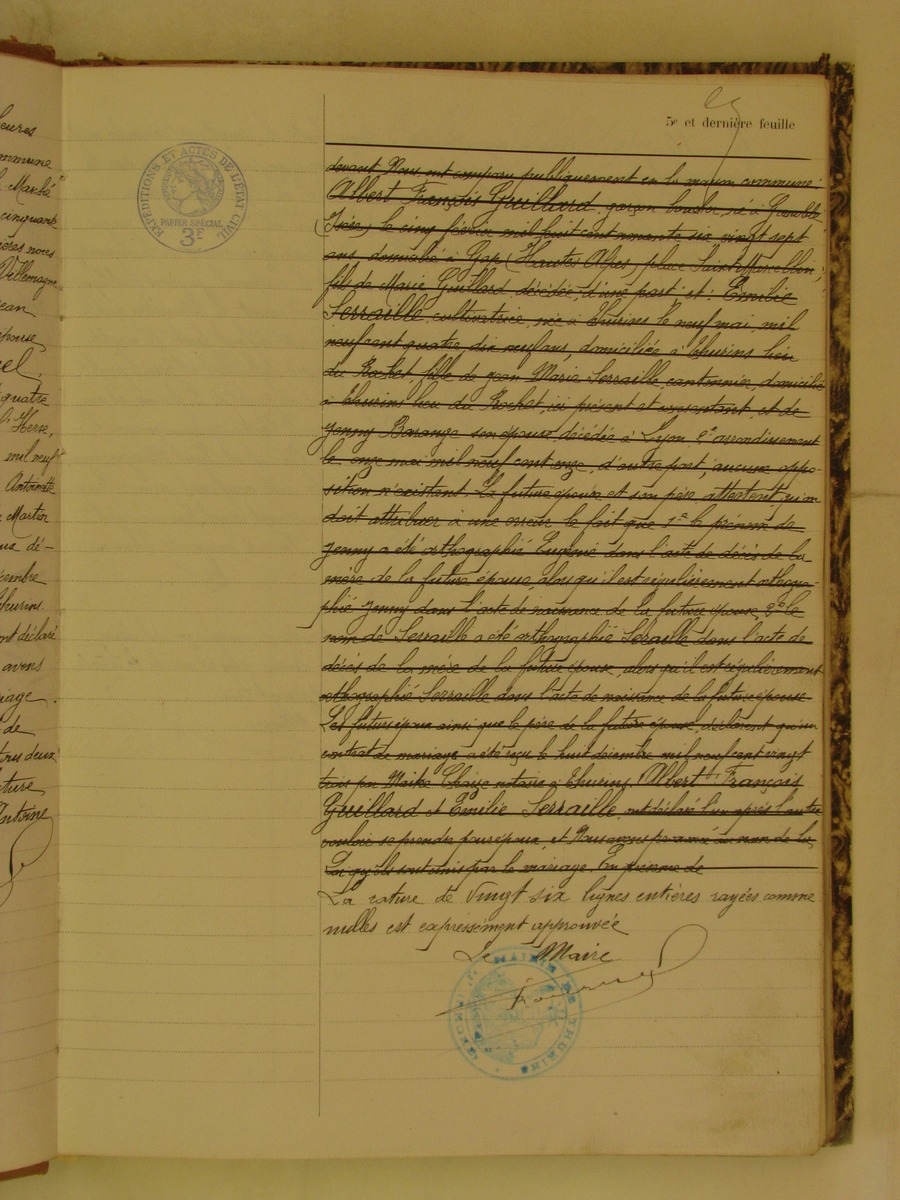 5e et dernière feuille
devant Nous ont comparu publiquement en la maison commune:
Albert François Guillard, garçon boucher, né à Grenoble
(Isère) le cinq février mil huit cent nonante six, vingt sept
ans, domicilié à Gap (Hautes Alpes) place Saint Marcellin;
fils de Marie Guillard décédée, d'une part et: Emilie
Serraille, cultivatrice, née à Thurins le neuf mai, mil
neuf cent quatre, dix neuf ans, domiciliée à Thurins lieu
du Rochet, fille de Jean Marie Serraille cantonnier, domicilié
à Thurins lieu du Rochet, ici présent et consentant et de
Jenny Barange son épouse, décédée à Lyon 2e arrondissement
le onze mai mil neuf cent onze, d'autre part, aucune oppo-
sition n'existant. La future épouse et son père attestent qu'on
doit attribuer à une erreur le fait que 1° le prénom de
Jenny a été orthographié Eugénie dans l'acte de décès de la
mère de la future épouse, alors qu'il est régulièrement orthogra-
phié Jenny dans l'acte de naissance de la future épouse, 2° le
nom de Serraille a été orthographié Séraille dans l'acte de
décès de la mère de la future épouse, alors qu'il est régulièrement
orthographié Serraille dans l'acte de naissance de la future épouse
Les futurs époux ainsi que le père de la future épouse, déclarent qu'un
contrat de mariage a été reçu le huit décembre mil neuf cent vingt
trois par Maître Chaize notaire à Thurins. Albert François
Guillard et Emilie Serraille, ont déclaré l'un après l'autre
vouloir se prendre pour époux, et Nous avons prononcé au nom de la
Loi qu'ils sont unis par le mariage. En présence de
La rature de Vingt six lignes entières rayées comme
nulles est expressément approuvée
Le Maire
EXPÉDITIONS ET ACTES DE L'ÉTAT CIVIL
PAPIER SPÉCIAL
3F
MAIRIE DE THURINS
leures
mmune
Marché
cinquante
Villemagne
ean
épouse
quatre
mil neuf
Antoinette
Martin
cembre
Thurins
nt déclaré
avons
riage
de
tres deux
cture
Antoine